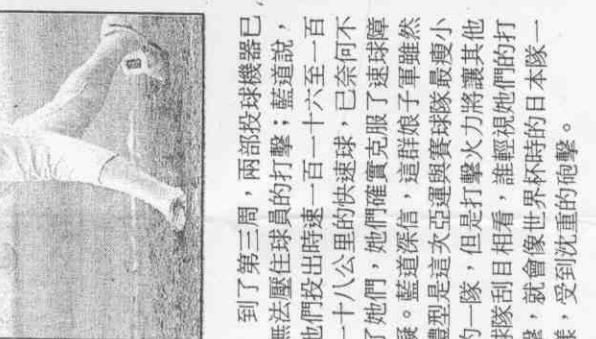 到了第三周，兩部投球機器已
無法壓住球員的打擊；藍道說，
他們投出時速一百一十六至一百
一十八公里的快速球，已奈何不
了她們，她們確實克服了速球障
礙。藍道深信，這群娘子軍雖然
體型是這次亞運與賽球隊最瘦小
的一隊，但是打擊火力將讓其他
球隊刮目相看，誰輕視她們的打
擊，就會像世界杯時的日本隊一
樣，受到沈重的砲擊。